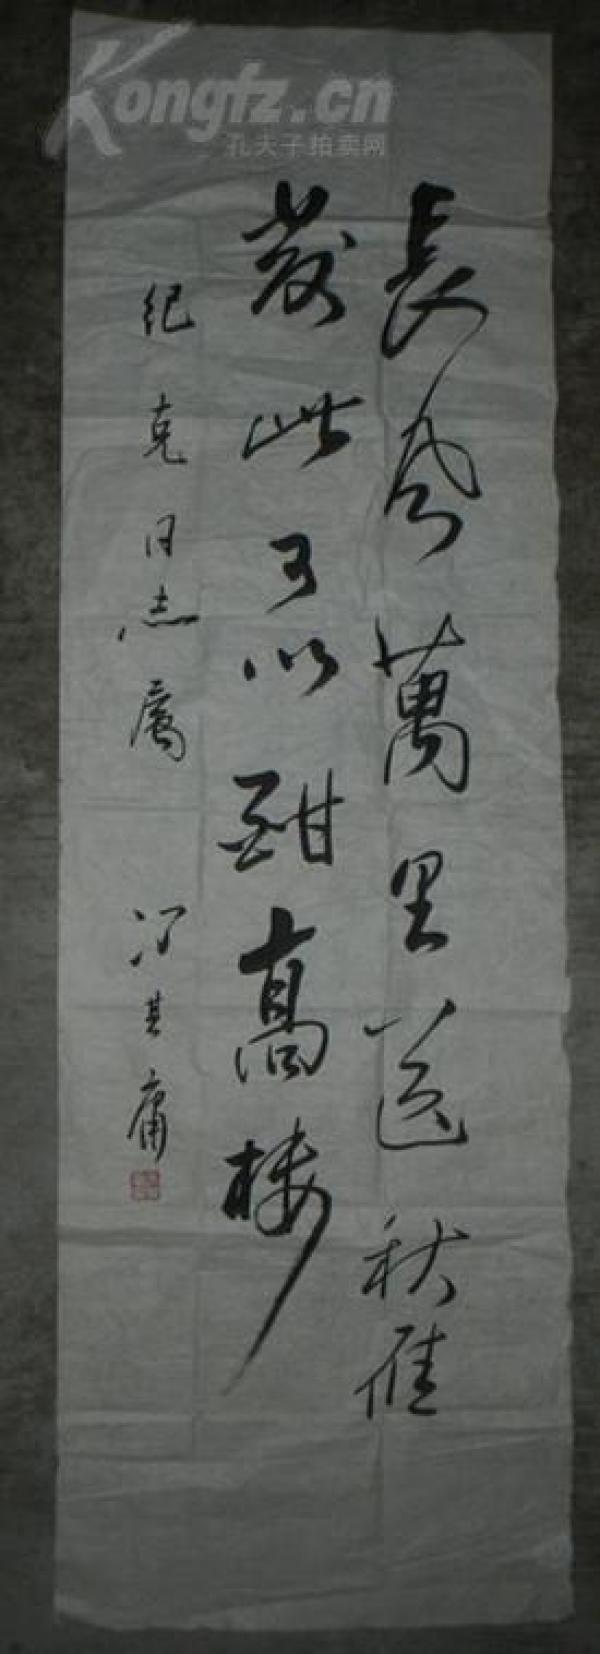 長風萬里送秋雁
發此可以酣高樓
纪克同志属
冯其庸
Kongfz.cn
孔夫子拍卖网